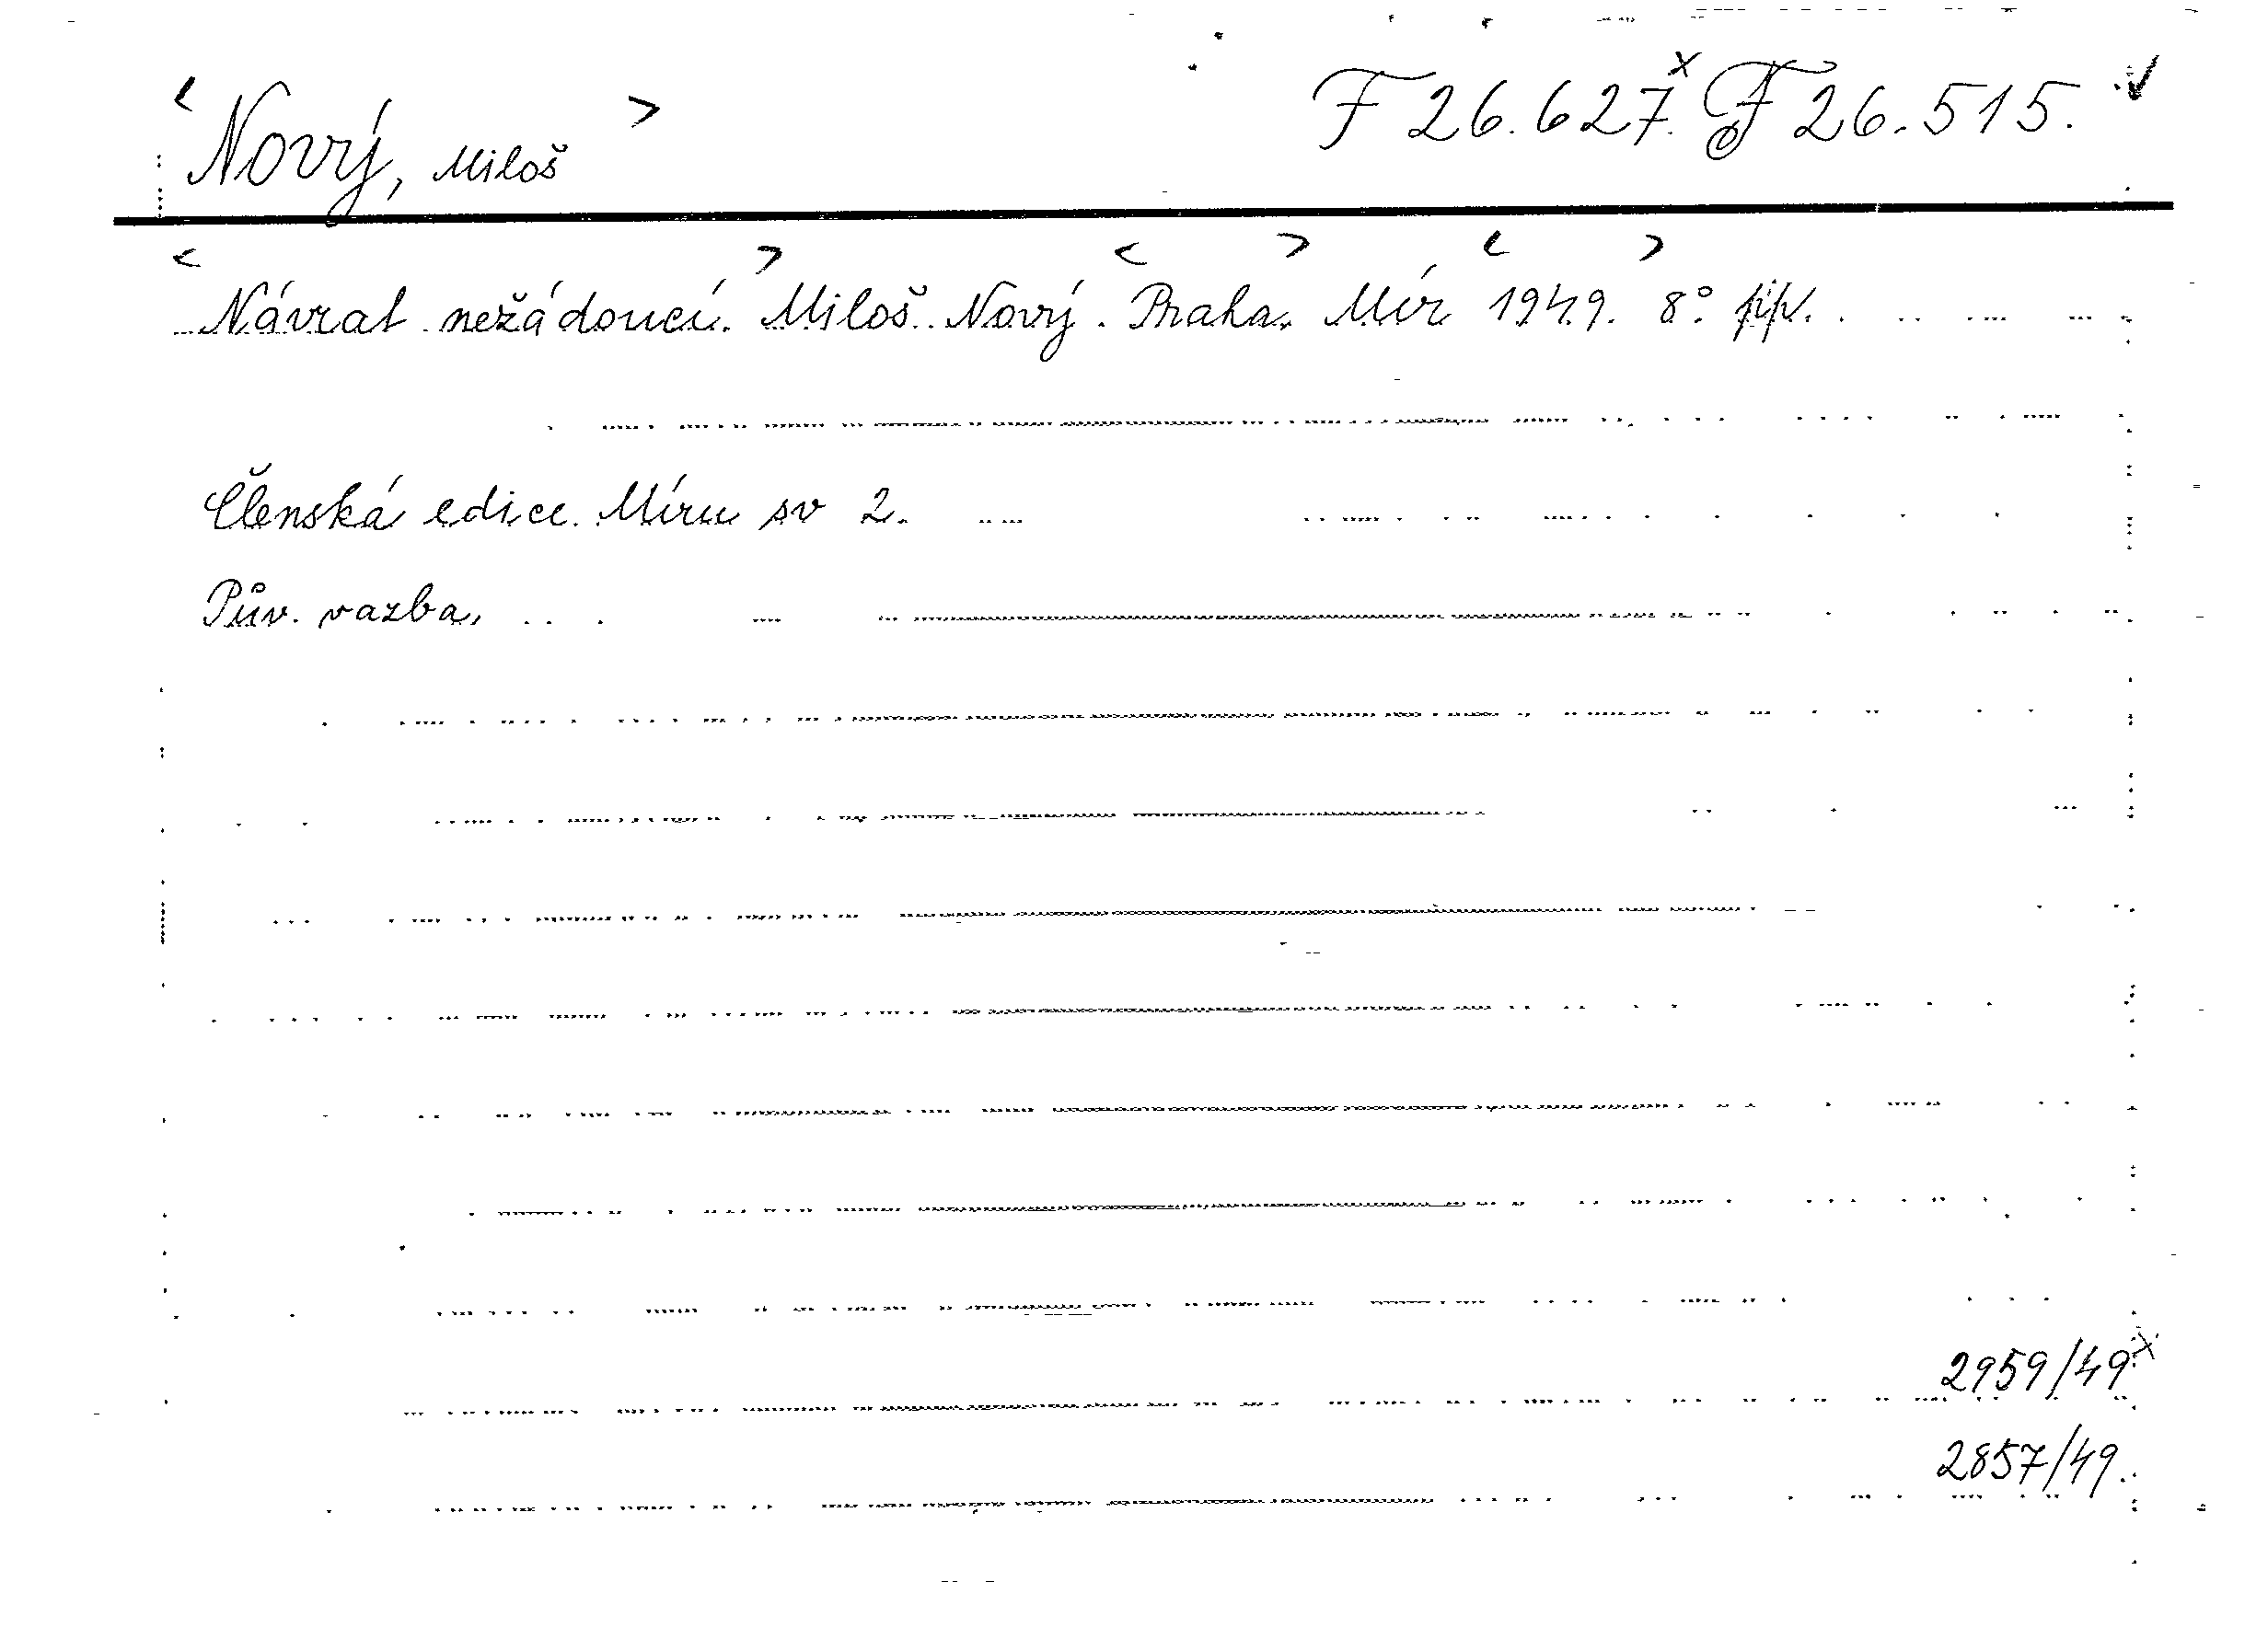 <Nový, Miloš> F 26.627.x F 26.515. ✓
<Návrat nežádoucí.> Miloš Nový. <Praha,> Mír <1949.> 8°
Členská edice Míru sv 2.
Pův. vazba.
2959/49x
2857/49.